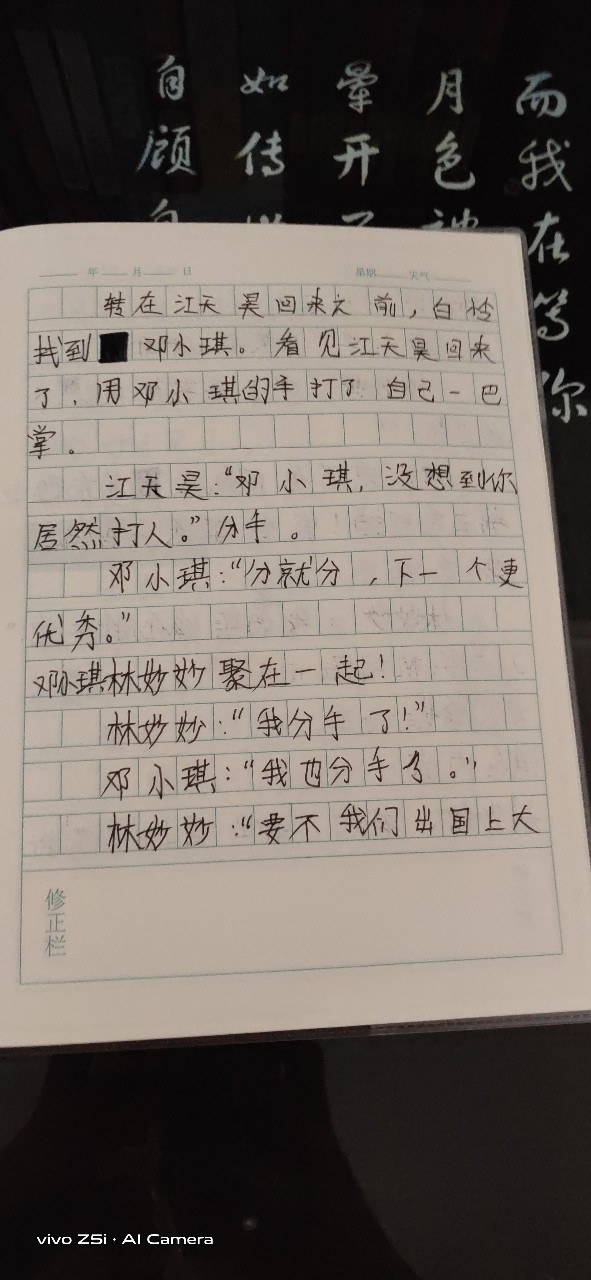 自 如 晕 月 而
顾 传 开 色 我
在
等
你
年 月 日 星期 天气
转在江天昊回来之前，白柃
找到 邓小琪。看见江天昊回来
了，用邓小琪的手打了自己一巴
掌。
江天昊：“邓小琪，没想到你
居然打人。”分手。
邓小琪：“分就分，下一个更
优秀。”
邓小琪林妙妙聚在一起！
林妙妙：“我分手了！”
邓小琪：“我也分手了。”
林妙妙：“要不我们出国上大
修正栏
vivo Z5i · AI Camera